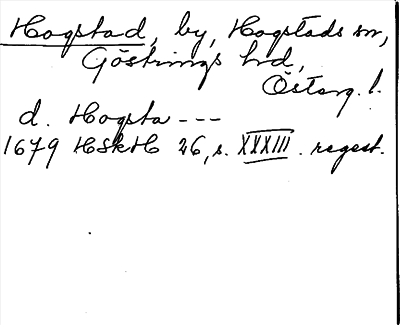 Hogstad, by, Hogstads sn,
Göstrings hd,
Östorg. l.
d. Hogsta ---
1679 HSkH 26, s. XXXIII. regest.